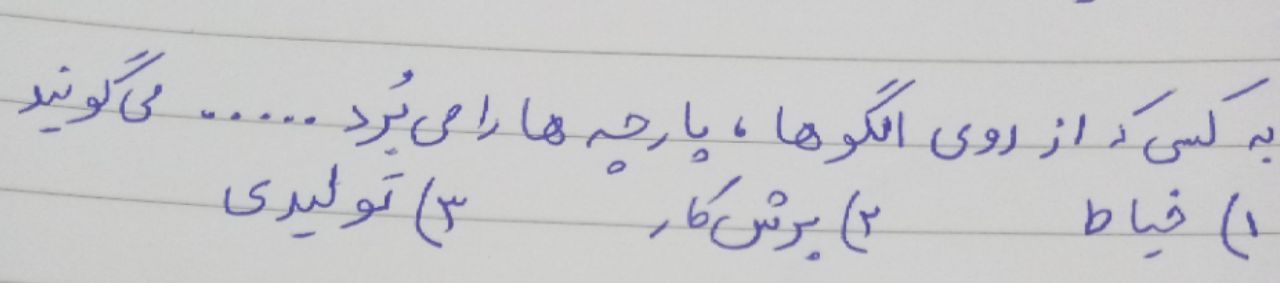 به کسی که از روی الگوها ، پارچه ها را می بُرد ...... می گویند
۱) خیاط ۲) برش کار ۳) تولیدی